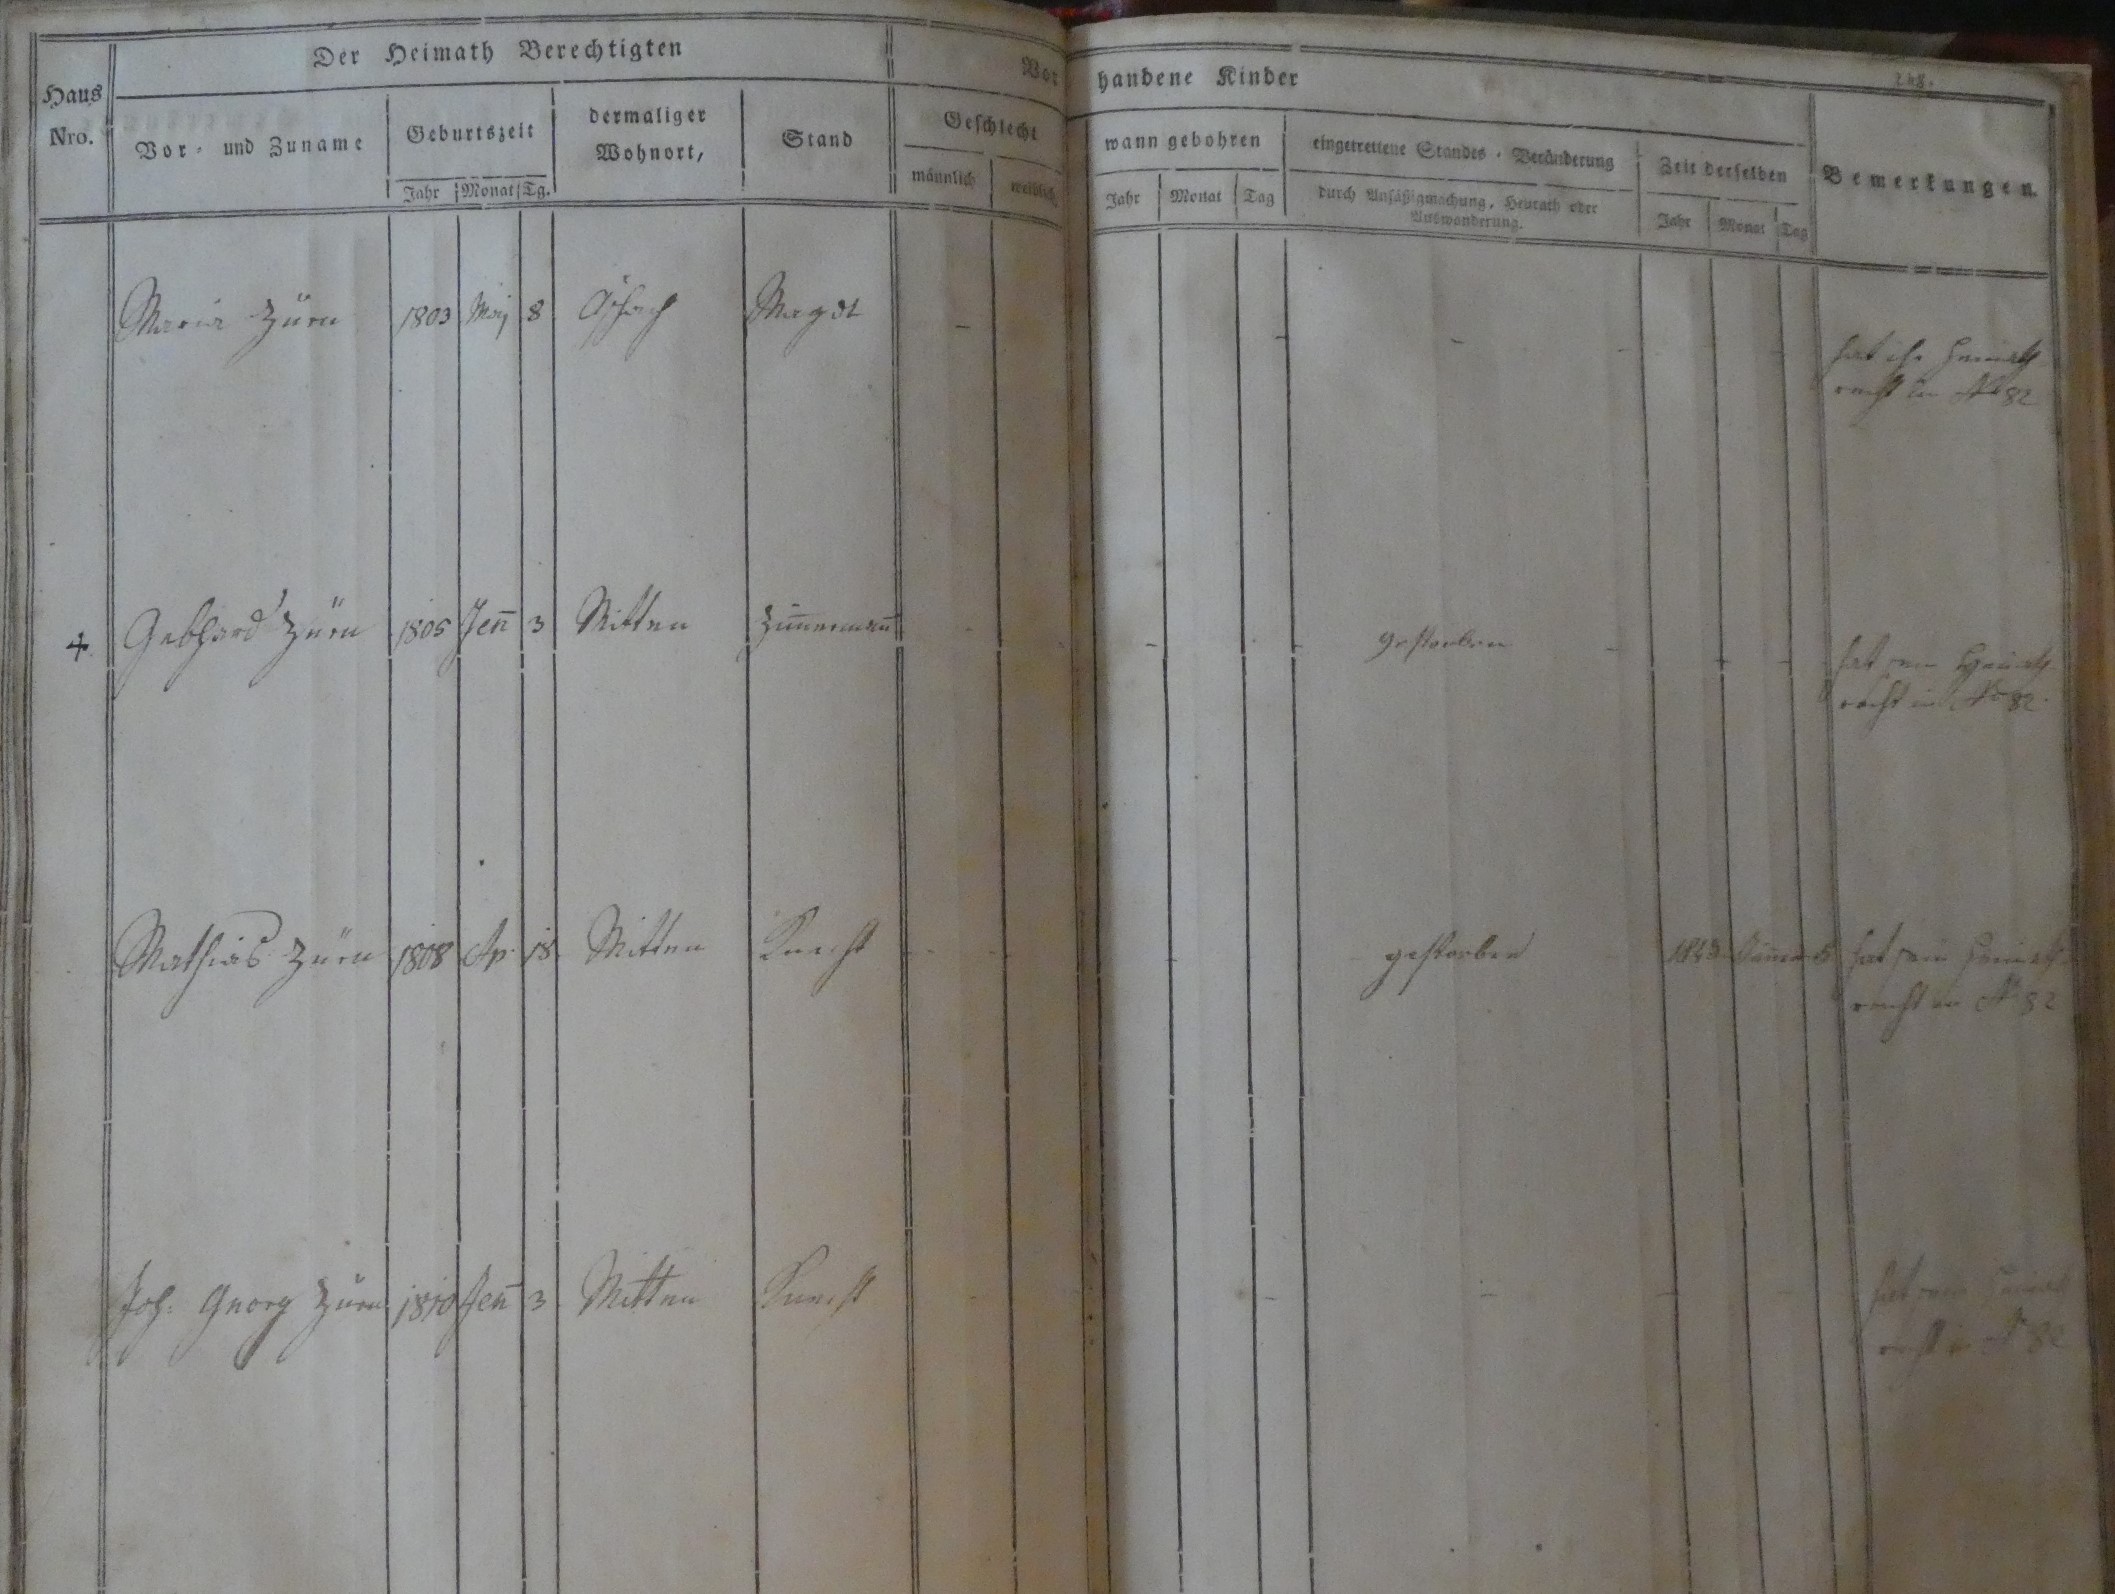 248.
Der Heimath Berechtigten
Vorhandene Kinder
Haus Nro.
Vor- und Zuname
Geburtszeit
Jahr Monat Tg.
dermaliger Wohnort,
Stand
Geschlecht
männlich weiblich
wann gebohren
Jahr Monat Tag
eingetrettene Standes-Veränderung
durch Ansäßigmachung, Heurath oder
Auswanderung.
Zeit derselben
Jahr Monat Tag
Bemerkungen.
Maria Zürn 1803 Maj 8 Magdt
hat ihr Heimath-
recht in No 82
+ Gebhard Zürn 1805 Jen̄ 3 Mitten Zim̄erman̄ gestorben
hat sein Heimath
recht in No 82.
Mathias Zürn 1808 Ap. 18 Mitten Knecht gestorben 5
hat sein Heimath-
recht in No 82
Joh: Georg Zürn 1810 Jen̄ 3 Mitten Knecht
hat sein Heimath
recht in No 82